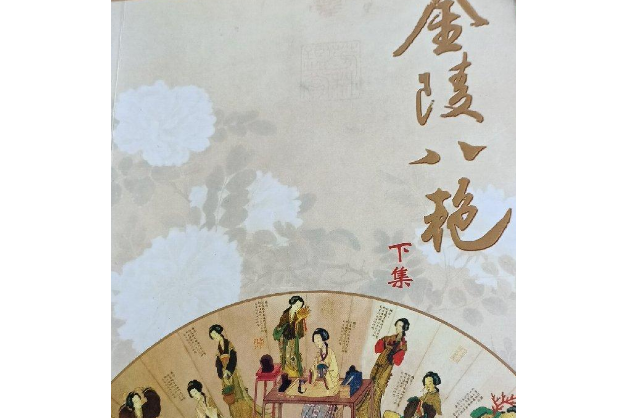 金陵八艳
下集